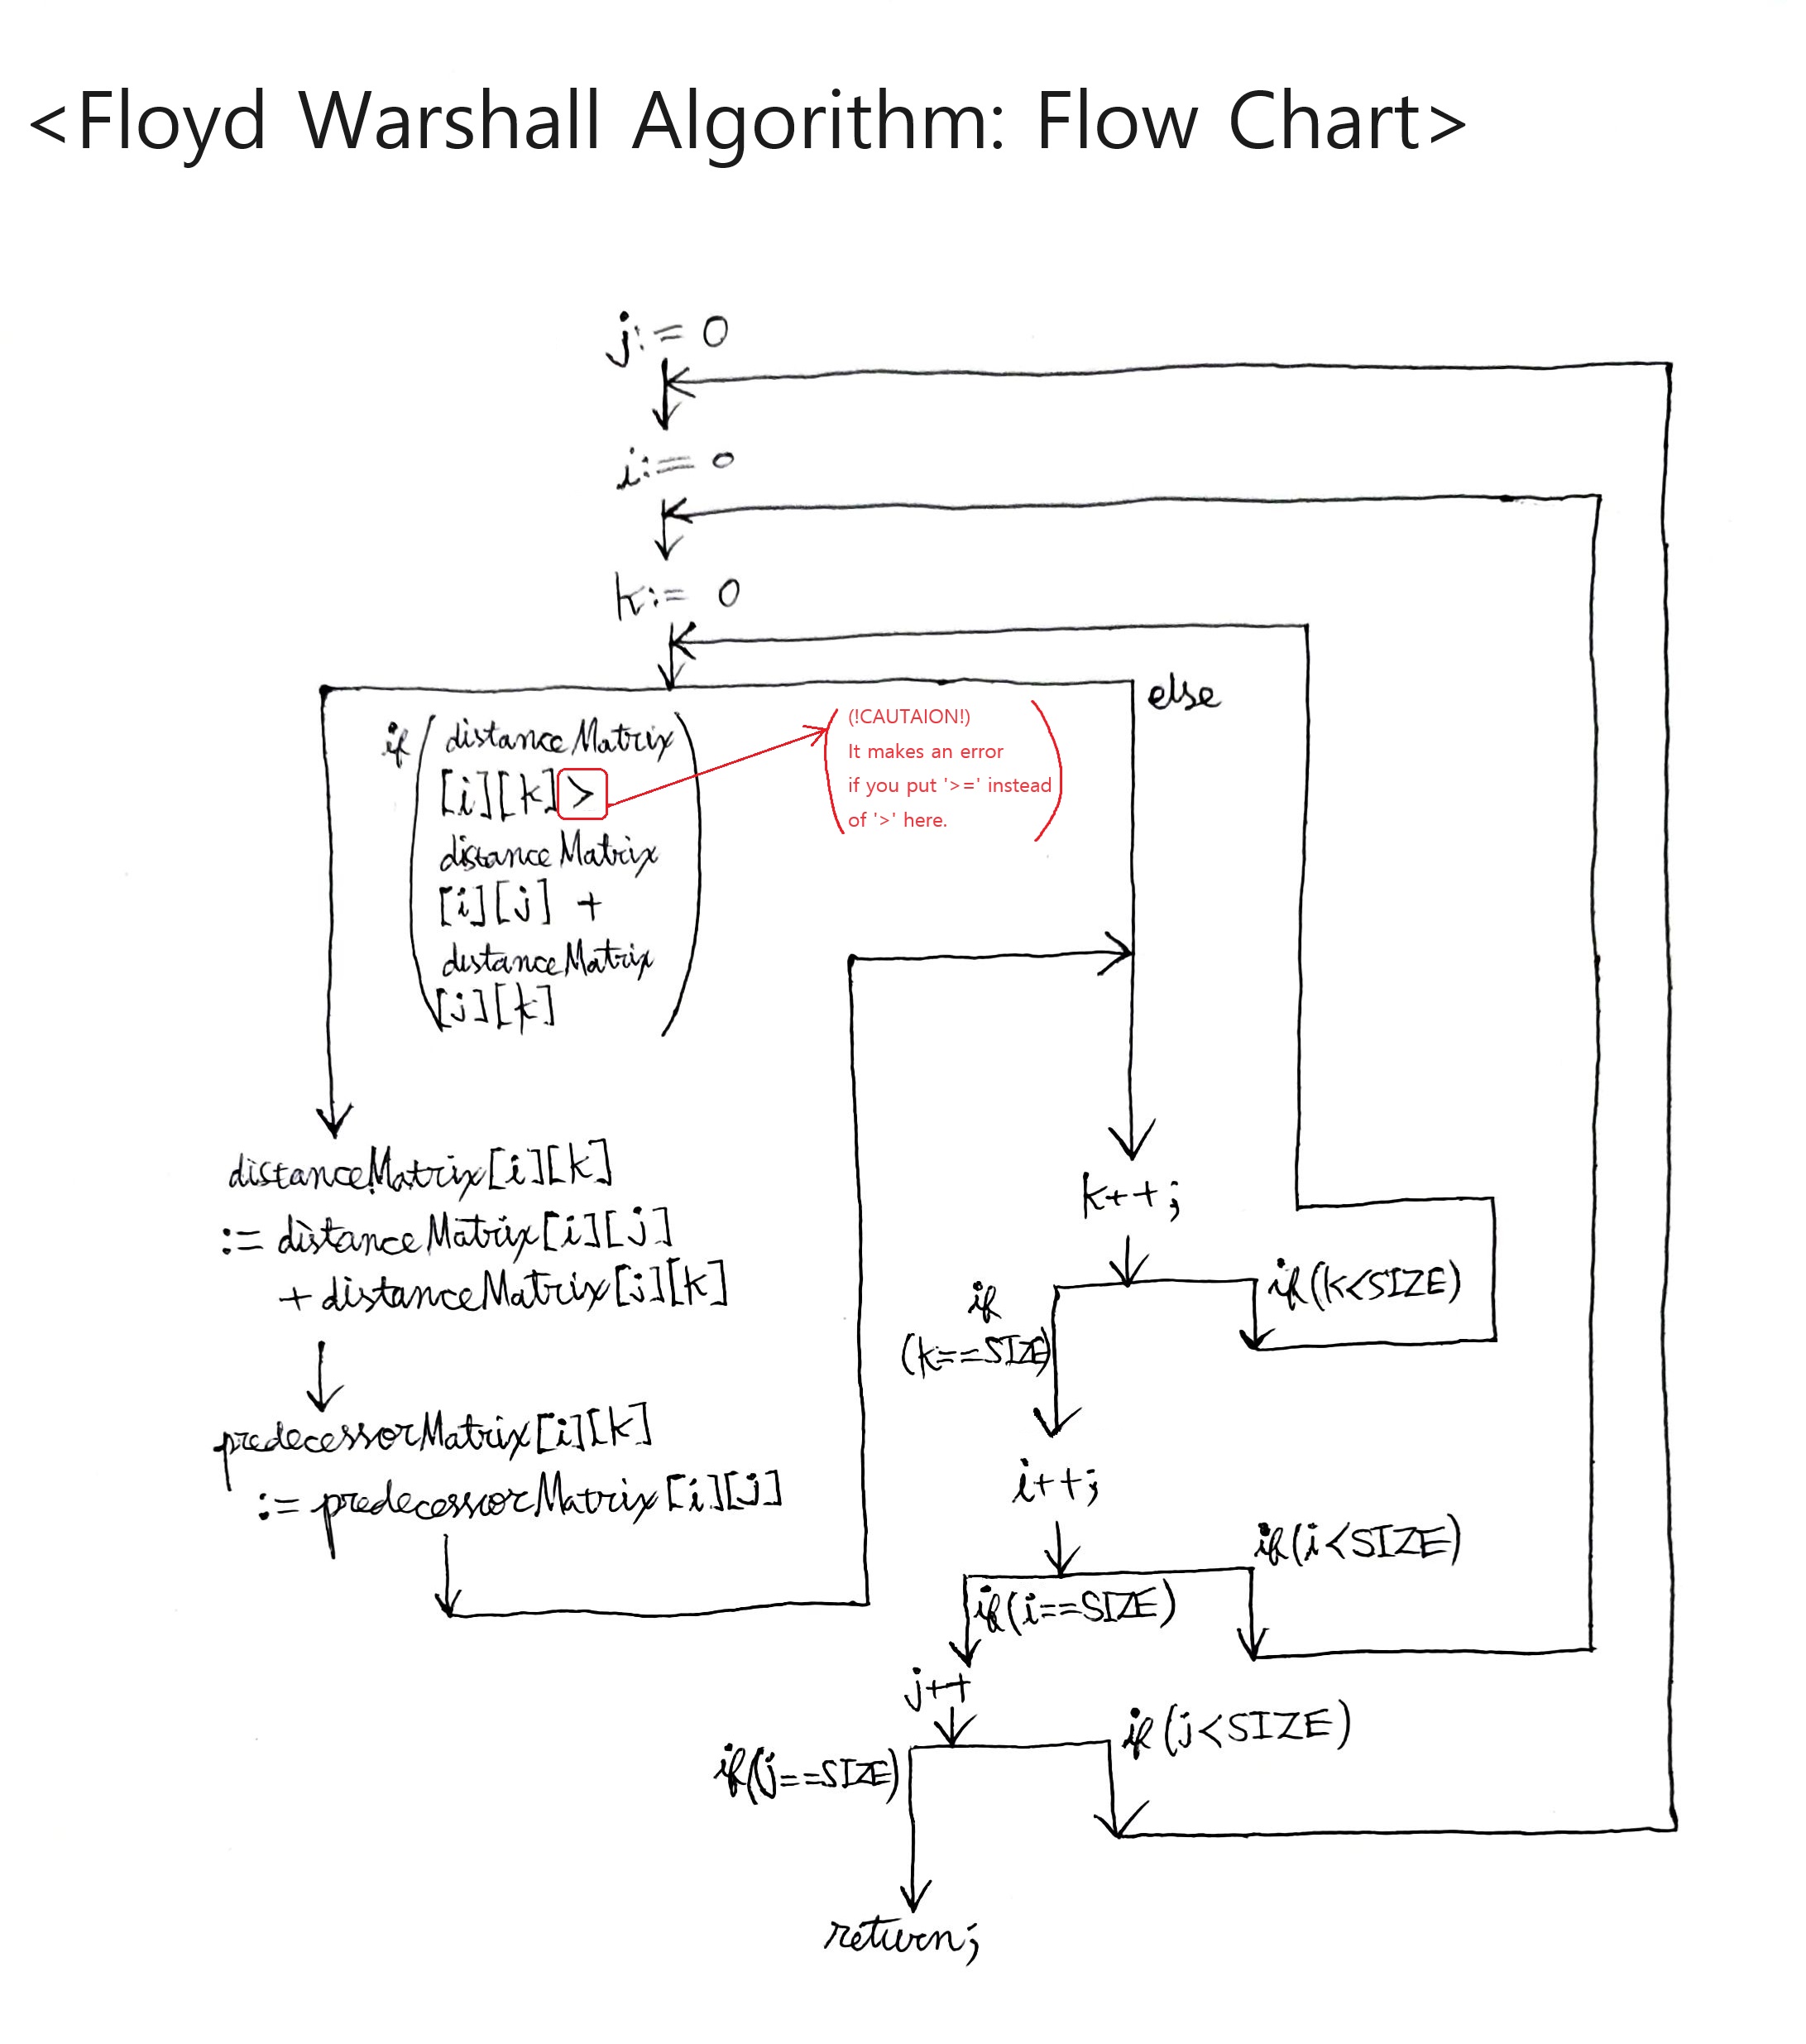 <Floyd Warshall Algorithm: Flow Chart>
j:= 0
i:= 0
k:= 0
else
if (distanceMatrix
[i][k] >
distanceMatrix
[i][j] +
distanceMatrix
[j][k])
(!CAUTAION!)
It makes an error
if you put '>=' instead
of '>' here.
distanceMatrix[i][k]
:= distanceMatrix[i][j]
+ distanceMatrix[j][k]
predecessorMatrix[i][k]
:= predecessorMatrix[i][j]
k++;
if (k<SIZE)
if
(k==SIZE)
i++;
if (i<SIZE)
if (i==SIZE)
j++
if (j<SIZE)
if (j==SIZE)
return;